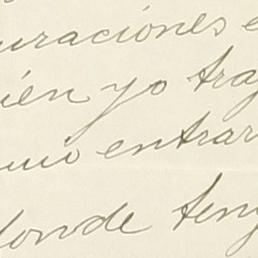 uraciones e
ien yo tra
mio entrar
donde teng